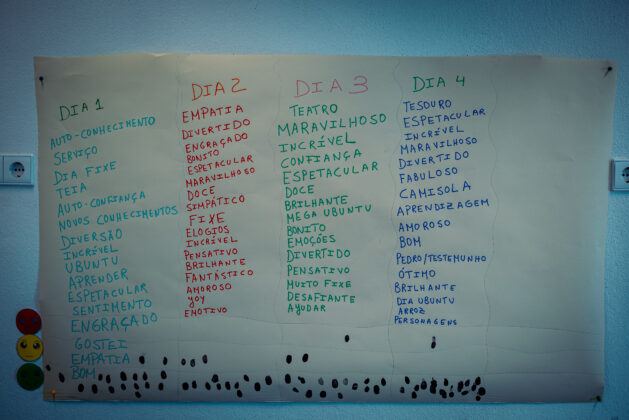 DIA 1
AUTO-CONHECIMENTO
SERVIÇO
DIA FIXE
TEIA
AUTO-CONFIANÇA
NOVOS CONHECIMENTOS
DIVERSÃO
INCRÍVEL
UBUNTU
APRENDER
ESPETACULAR
SENTIMENTO
ENGRAÇADO
GOSTEI
EMPATIA
BOM
DIA 2
EMPATIA
DIVERTIDO
ENGRAÇADO
BONITO
ESPETACULAR
MARAVILHOSO
DOCE
SIMPÁTICO
FIXE
ELOGIOS
INCRÍVEL
PENSATIVO
BRILHANTE
FANTÁSTICO
AMOROSO
YOY
EMOTIVO
DIA 3
TEATRO
MARAVILHOSO
INCRÍVEL
CONFIANÇA
ESPETACULAR
DOCE
BRILHANTE
MEGA UBUNTU
BONITO
EMOÇÕES
DIVERTIDO
PENSATIVO
MUITO FIXE
DESAFIANTE
AJUDAR
DIA 4
TESOURO
ESPETACULAR
INCRÍVEL
MARAVILHOSO
DIVERTIDO
FABULOSO
CAMISOLA
APRENDIZAGEM
AMOROSO
BOM
PEDRO/TESTEMUNHO
ÓTIMO
BRILHANTE
DIA UBUNTU
ARROZ
PERSONAGENS